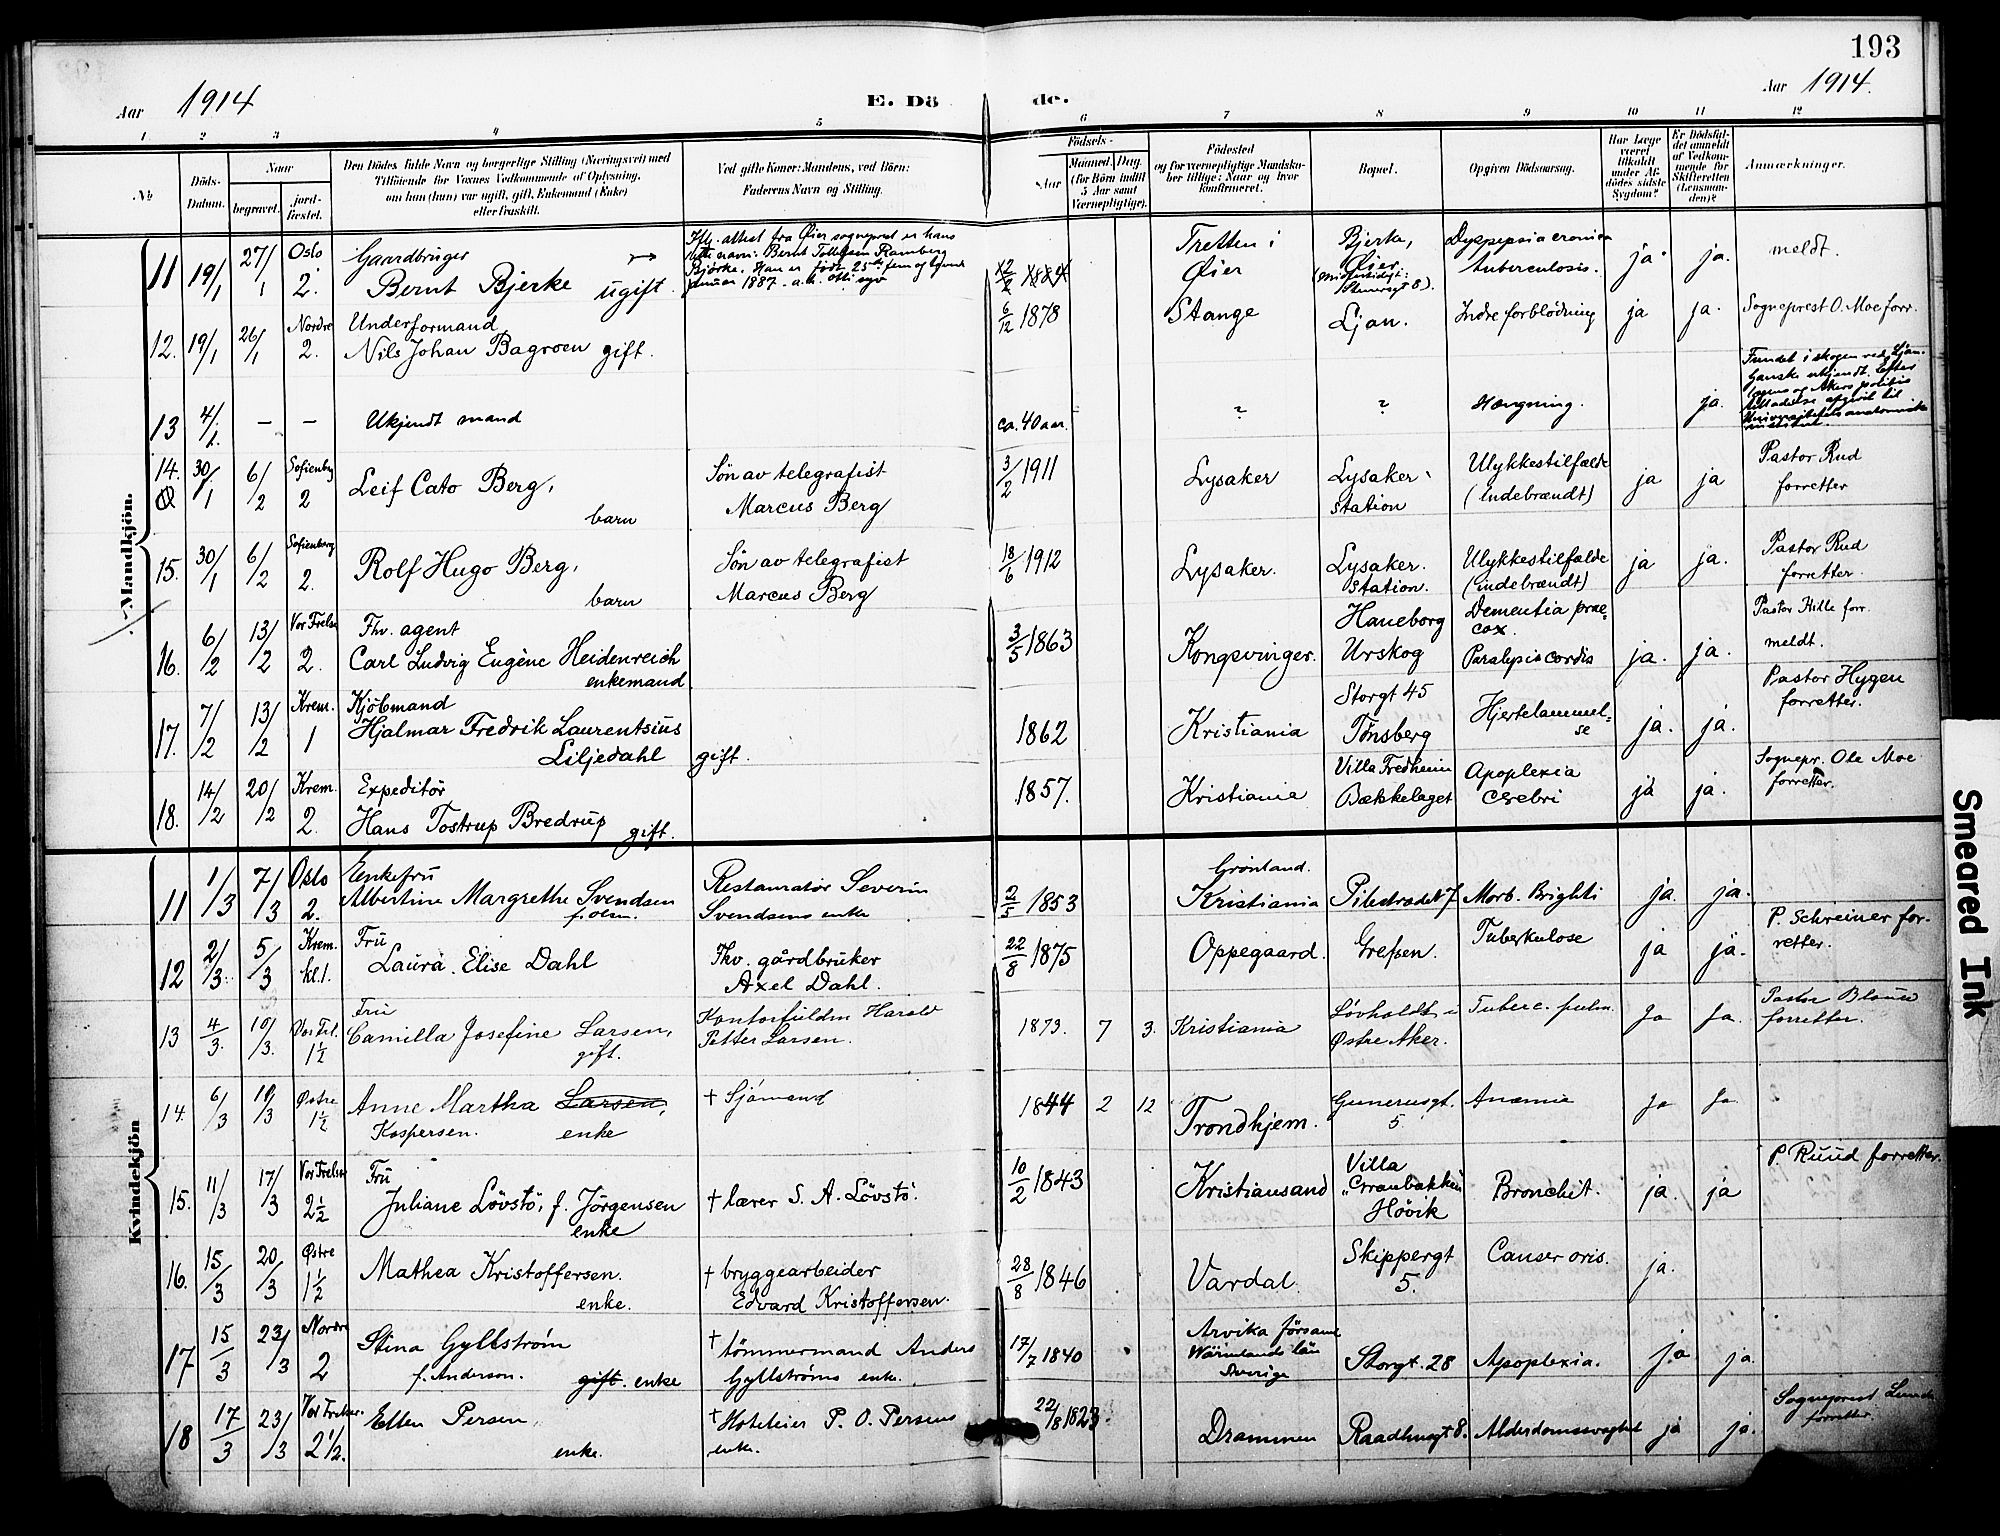 193
Aar 1914
E. Dö de.
Aar 1914.
1. 2 3 4 5 6 7 8 9 10 11 12
№
Döds-Datum.
Naar
begravet.
jord-fæstet.
Den Dödes fulde Navn og borgerlige Stilling (Næringsvei) med
Tilföiende for Voxnes Vedkommende af Oplysning,
om han (hun) var ugift, gift, Enkemand (Enke)
eller fraskilt.
Ved gifte Koner: Mandens, ved Börn:
Faderens Navn og Stilling.
Födsels-
Aar
Maaned. Dag.
(for Börn indtil
5 Aar samt
Værnepligtige).
Födested
og for værnepligtige Mandskaber tillige: Naar og hvor
konfirmeret.
Bopæl.
Opgiven Dödsaarsag.
Har Læge
været
tilkaldt
under Afdödes sidste
Sygdom?
Er Dödsfaldet anmeldt
af Vedkommende for
Skifteretten
(Lensmanden)?
Anmærkninger.
Mandkjön.
11 19/1 27/1 Oslo 2.
Gaardbruger
Bernt Bjerke ugift.
Iflg. attest fra Øier sogneprest er hans
rette navn: Bernt Tollefsen Ramberg
Björke. Han er født 25de
januar 1887.
Tretten i
Øier
Bjerke,
Øier
Dyspepsia cronica
tuberculosis.
ja ja. meldt.
12. 19/1 26/1 Nordre 2.
Underformand
Nils Johan Bagroen gift.
6/12 1878 Stange Ljan. Indre forblödning ja ja. Sogneprest O. Moe forr.
13 4/1. — — Ukjendt mand
ca. 40 aar. ? ? Hængning. ja.
Fundet i skogen ved Ljan.
Ganske ukjendt. Efter
14. 30/1 6/2 Sofienberg 2
Leif Cato Berg,
barn
Søn av telegrafist
Marcus Berg
3/2 1911 Lysaker Lysaker
station
Ulykkestilfælde
(indebrændt)
ja ja
Pastor Rud
forretter
15. 30/1 6/2 Sofienberg 2.
Rolf Hugo Berg,
barn
Søn av telegrafist
Marcus Berg
18/6 1912 Lysaker. Lysaker.
Station.
Ulykkestilfælde
(indebrændt)
ja ja.
Pastor Rud
forretter.
16. 6/2 13/2 Vor Frelse 2.
Fhv. agent
Carl Ludvig Eugène Heidenreich
enkemand
3/5 1863 Kongsvinger. Haneborg
Urskog
Dementia præ=
cox.
Paralysis cordis
ja. ja.
Pastor Hille forr.
meldt.
17. 7/2 13/2 Krem. 1
Kjöbmand
Hjalmar Fredrik Laurentsius
Liljedahl gift.
1862 Kristiania Storgt 45
Tønsberg
Hjertelammel=
se
ja. ja.
Pastor Hygen
forretter.
18. 14/2 20/2 Krem. 2.
Expeditör
Hans Tostrup Bredrup gift.
1857. Kristiania Villa Fredheim
Bækkelaget
Apoplexia
cerebri
ja ja.
Sognepr. Ole Moe
forretter.
Kvindekjön
11 1/3 7/3 Oslo 2.
Enkefru
Albertine Margrethe Svendsen
Restauratør Severin
Svendsens enke
2/5 1853 Grønland.
Kristiania Pilestrædet 7 Morb. Brighti ja. ja.
12 2/3. 5/3 Krem. kl. 1.
Fru
Laura. Elise Dahl
Fhv. gårdbruker
Axel Dahl.
22/8 1875 Oppegaard. Grefsen. Tuberkulose ja ja.
P. Schreiner for-
retter.
13 4/3. 10/3. Vor Frl. 1½
Fru
Camilla Josefine Larsen,
gift.
Kontorfuldm Harald
Petter Larsen.
1873. 7 3. Kristiania Løvholdt i
Østre Aker.
Tuberc. pulm. Ja Ja.
Pastor
forretter.
14. 6/3 10/3 Østre 1½
Anne Martha Larsen,
Kaspersen. enke
† Sjömand
1844 2 12 Trondhjem. Gunerusgt.
5.
Anæmia Ja Ja.
15. 11/3 17/3 Vor Frelser 2½
Fru
Juliane Lövstö, f. Jörgensen
enke
† lærer S. A. Lövstö.
10/2 1843 Kristiansand Villa
"Granbakken
Hövik
Bronchit. ja. ja
P. Ruud forretter.
16. 15/3 20/3 Østre 1½
Mathea Kristoffersen.
enke.
† bryggearbeider
Edvard Kristoffersen.
28/8 1846 Vardal. Skippergt
5.
Canser oris. ja.
17 15/3 23/3 Nordre 2
Stina Gyllström
f. Anderson. gift. enke
† tömmermand Anders
Gyllströms enke.
17/7 1840 Arvika församl.
Wärmlands län
Sverige
Storgt. 28 Apoplexia. ja ja.
18 17/3 23/3 Vor Frelser. 2½.
Ellen Persen,
enke.
† Hoteleier P. O. Persens
enke.
22/8 1823. Drammen Raadhusgt 8. Alderdomssvaghet ja ja.
Sogneprest Lunde
forretter.
Smeared Ink